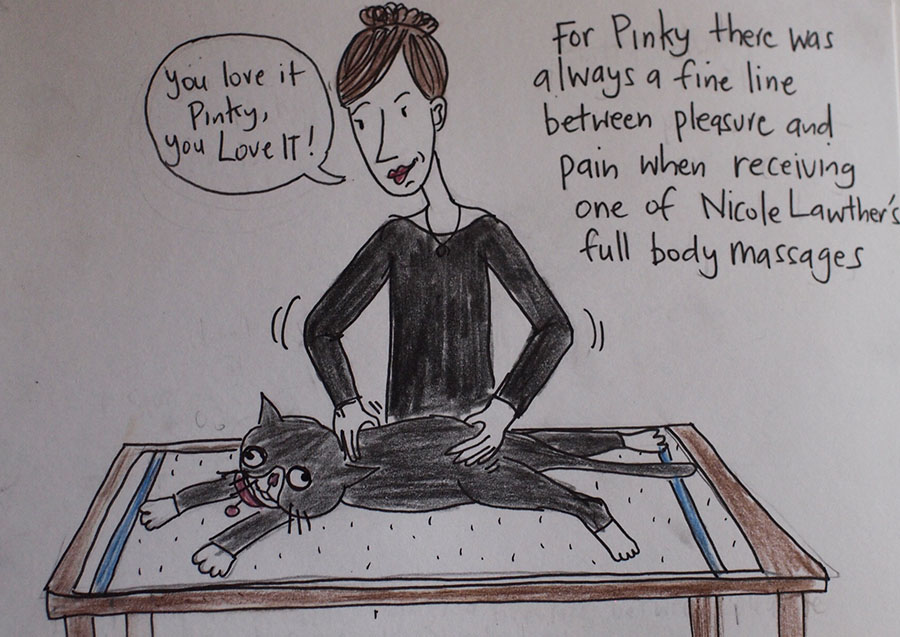 you love it
Pinky,
you Love IT!
For Pinky there was
always a fine line
between pleasure and
pain when receiving
one of Nicole Lawther's
full body massages